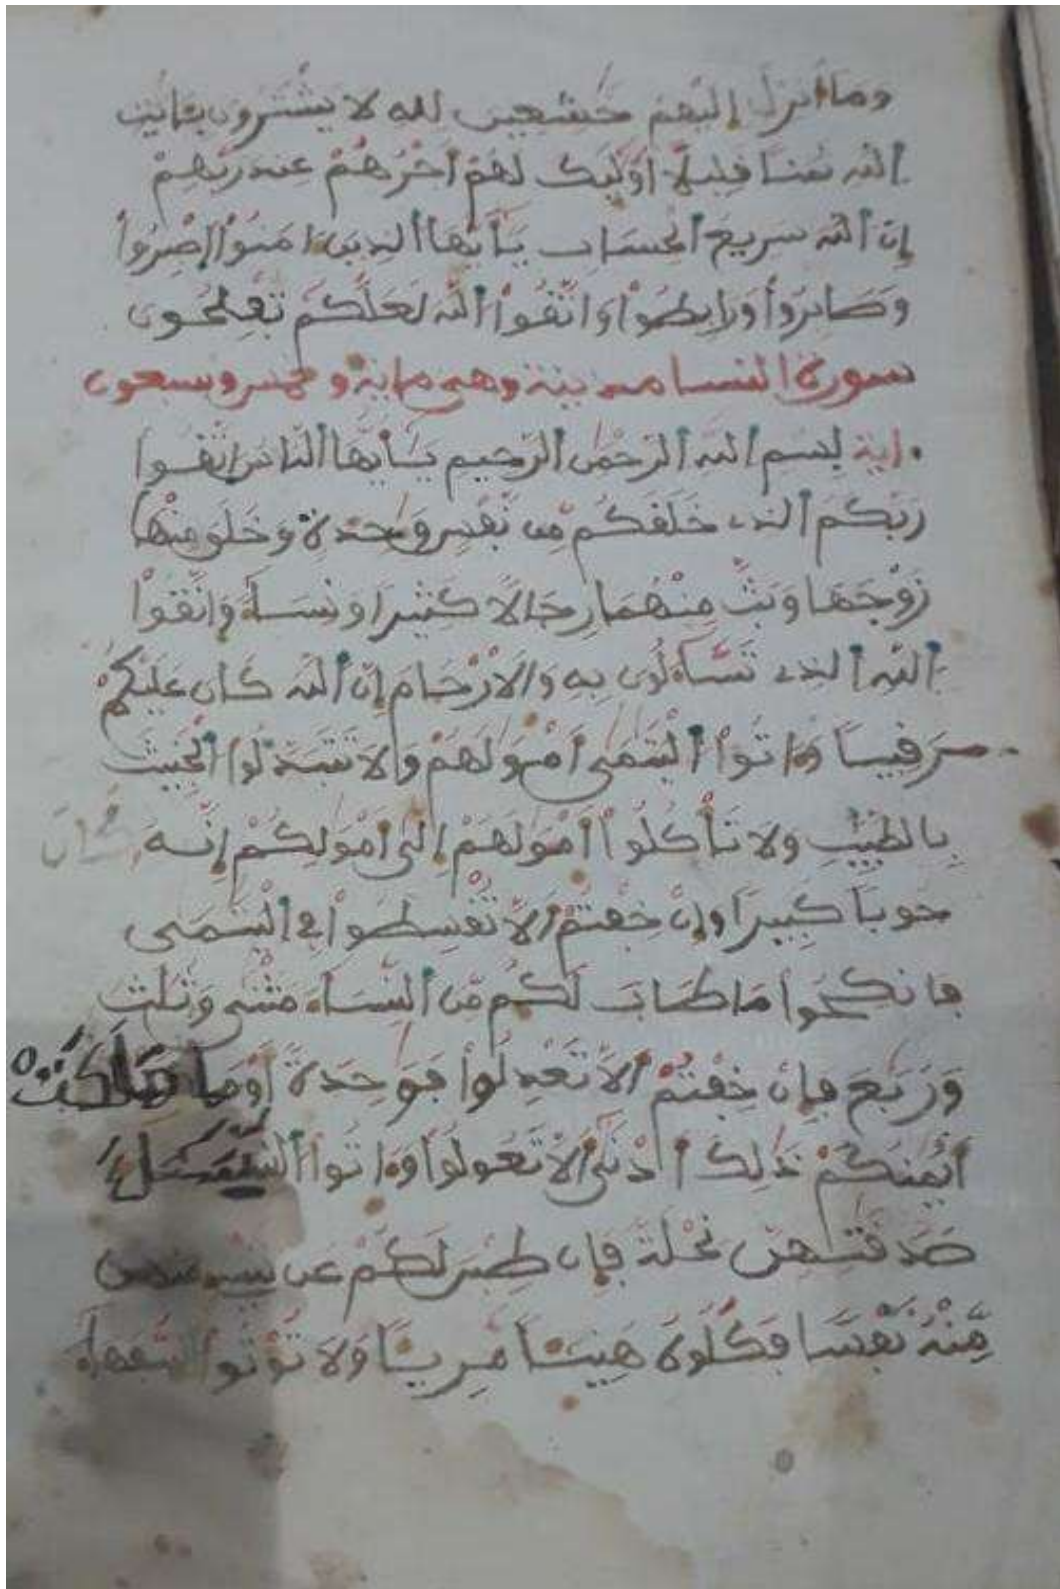 وما أنزل إليهم خشعين لله لا يشترون بـٔايت
الله ثمنا قليلا أولئك لهم أجرهم عند ربهم
إن الله سريع الحساب يـأيها الذين ءامنوا اصبروا
وصابروا ورابطوا واتقوا الله لعلكم تفلحون
سورة النسا مدينة وهي ماية وخمس وسبعون
اية بسم الله الرحمن الرحيم يـأيها الناس اتقوا
ربكم الذي خلقكم من نفس وحدة وخلق منها
زوجها وبث منهما رجالا كثيرا ونساء واتقوا
الله الذي تساءلون به والارحام إن الله كان عليكم
رقيبا وءاتوا اليتمى أمولهم ولا تتبدلوا الخبيث
بالطيب ولا تأكلوا أمولهم إلى أمولكم إنه كان
حوبا كبيرا وإن خفتم ألا تقسطوا في اليتمى
فانكحوا ما طاب لكم من النساء مثنى وثلث
وربع فإن خفتم ألا تعدلوا فوحدة أو ما ملكت
أيمنكم ذلك أدنى ألا تعولوا وءاتوا النساء
صدقتهن نحلة فإن طبن لكم عن
منه نفسا فكلوه هنيئا مريئا ولا توتوا السفهاء